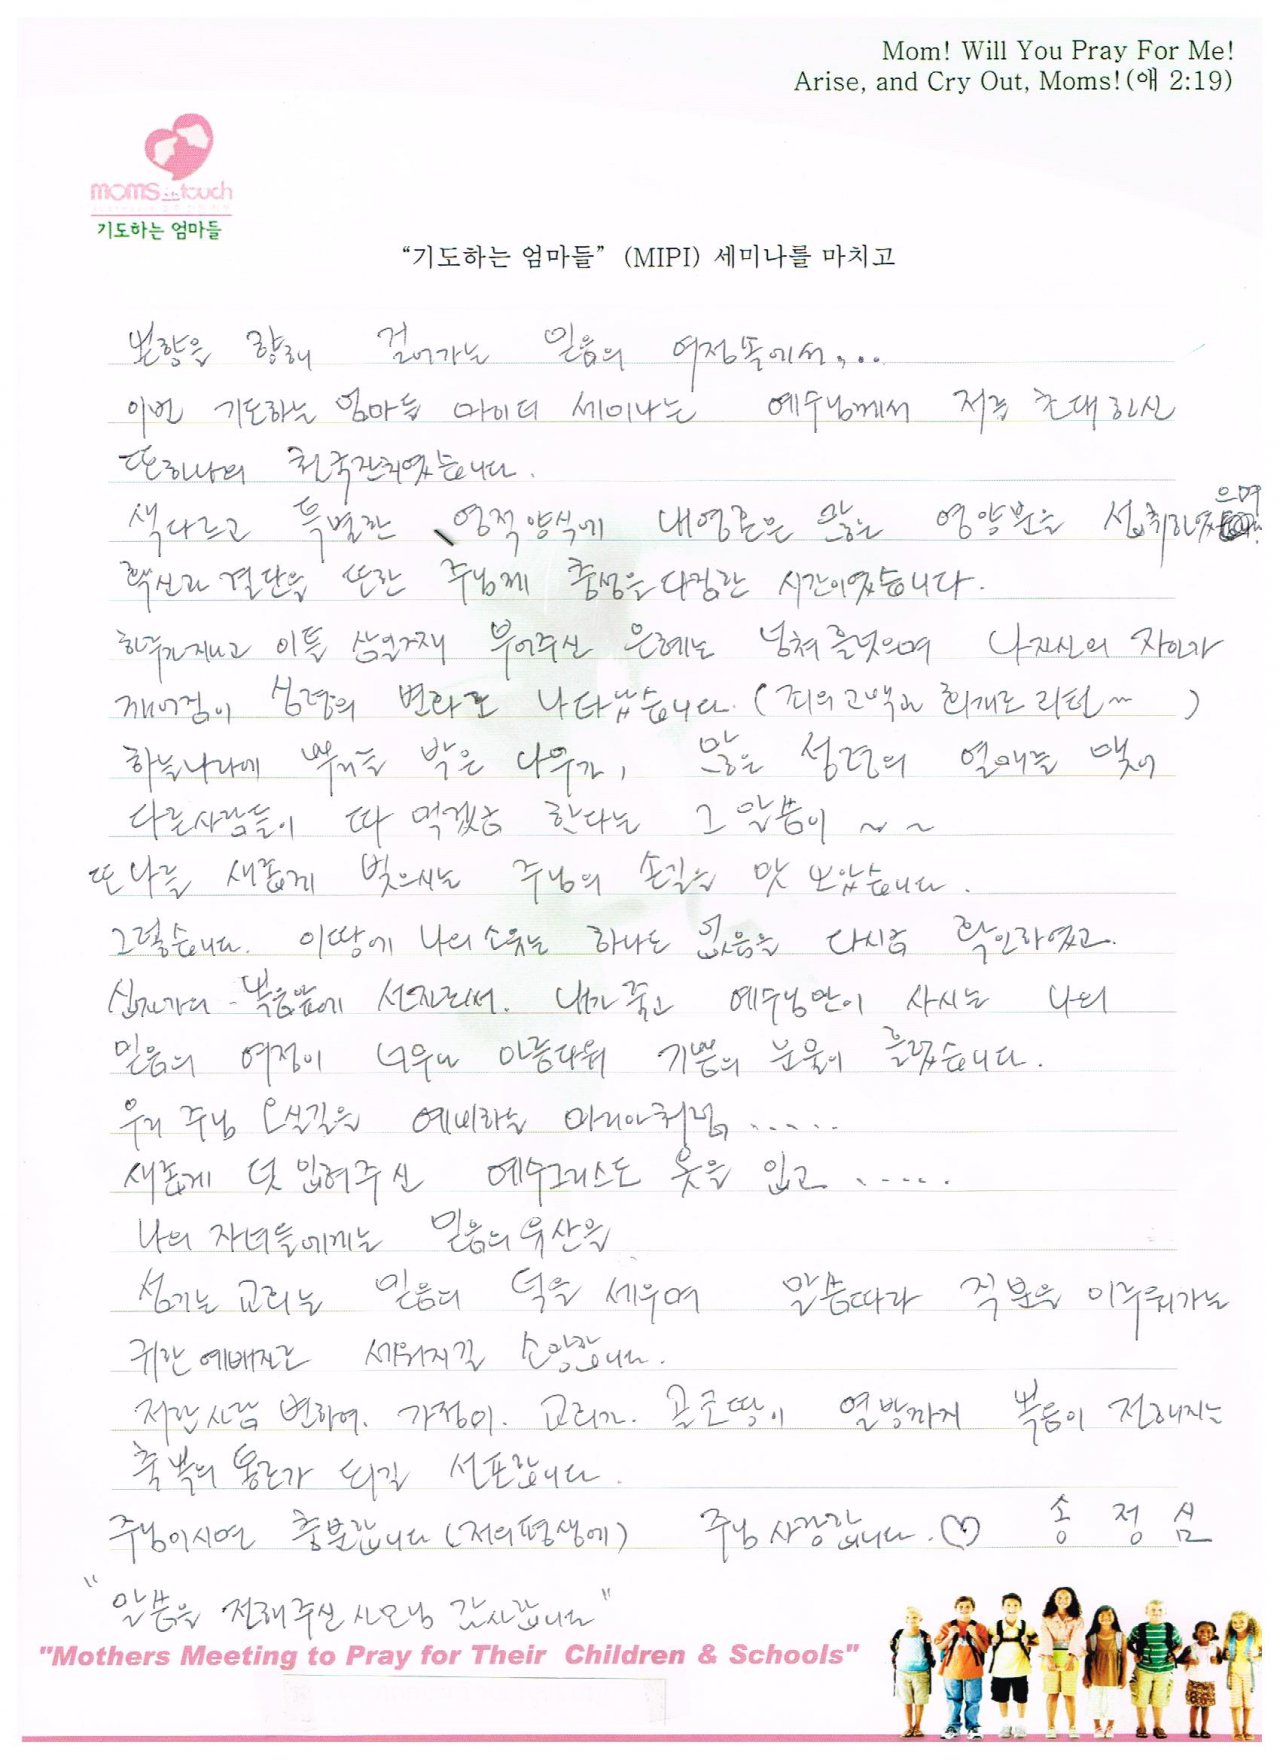 Mom! Will You Pray For Me!
Arise, and Cry Out, Moms!(애 2:19)
moms in touch
기도하는 엄마들
“기도하는 엄마들” (MIPI) 세미나를 마치고
본향을 향해 걸어가는 믿음의 여정속에서...
이번 기도하는 엄마들 세미나는 예수님께서 저를 초대하신
또하나의 천국잔치였습니다.
색다르고 특별한 영적양식에 내영혼은 많은 영양분을 섭취하였으며
헌신과 결단을 또한 주님께 충성을 다짐한 시간이였습니다.
하루가 지나고 이틀 삼일째 부어주신 은혜는 넘쳐 흘렀으며 나자신의 자아가
깨어짐이 심령의 변화로 나타났습니다. (죄의 고백과 회개로 리턴~ )
하늘나라에 뿌리를 박은 나무가, 많은 성령의 열매를 맺어
다른사람들이 따 먹겠금 한다는 그 말씀이 ~ ~
또 나를 새롭게 빚으시는 주님의 손길을 맛 보았습니다.
그렇습니다. 이땅에 나의 소유는 하나도 없음을 다시금 확인하였고.
십자가의 복음앞에 선자로서. 내가 죽고 예수님만이 사시는 나의
믿음의 여정이 너무나 아름다워 기쁨의 눈물이 흘렀습니다.
우리 주님 오실길을 예비하는 마리아처럼.....
새롭게 덧 입혀주신 예수그리스도 옷을 입고 .....
나의 자녀들에게는 믿음의 유산을
섬기는 교회는 믿음의 덕을 세우며 말씀따라 직분을 이루워가는
귀한 예배자로 세워지길 소망합니다.
저한사람 변하여. 가정이. 교회가. 골코땅이 열방까지 복음이 전해지는
축복의 통로가 되길 선포합니다.
주님이시면 충분합니다 (저의평생에) 주님 사랑합니다. ♡ 송 정 심
“말씀을 전해주신 사모님 감사합니다”
"Mothers Meeting to Pray for Their Children & Schools"